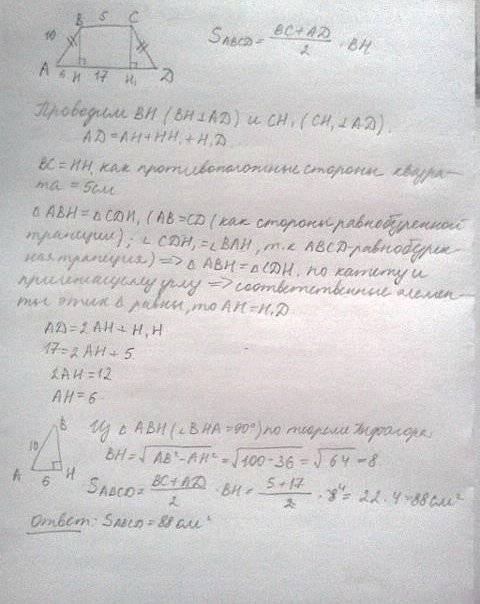 B 5 C
10
A 6 H 17 H₁ D
S_ABCD = (BC+AD)/2 · BH
Проводим BH (BH⊥AD) и CH₁ (CH₁⊥AD).
AD=AH+HH₁+H₁D
BC=HH₁ как противоположные стороны квадра-
та = 5см
Δ ABH=Δ CDH₁ (AB=CD (как стороны равнобуренной
трапеции); ∠ CDH₁=∠BAH, т.к ABCD-равнобурен-
ная трапеция) => Δ ABH=ΔCDH₁ по катету и
прилежащему углу => соответственные элемен-
ты этих Δ равны, то AH=H₁D
AD=2AH+H₁H
17=2AH+5
2AH=12
AH=6
B
10
A 6 H
Из Δ ABH (∠BHA=90°) по теореме Пифагора:
BH=√(AB²-AH²)=√(100-36)=√64=8
S_ABCD=(BC+AD)/2 · BH=(5+17)/2 · 8⁴=22·4=88см²
Ответ: S_ABCD=88см²